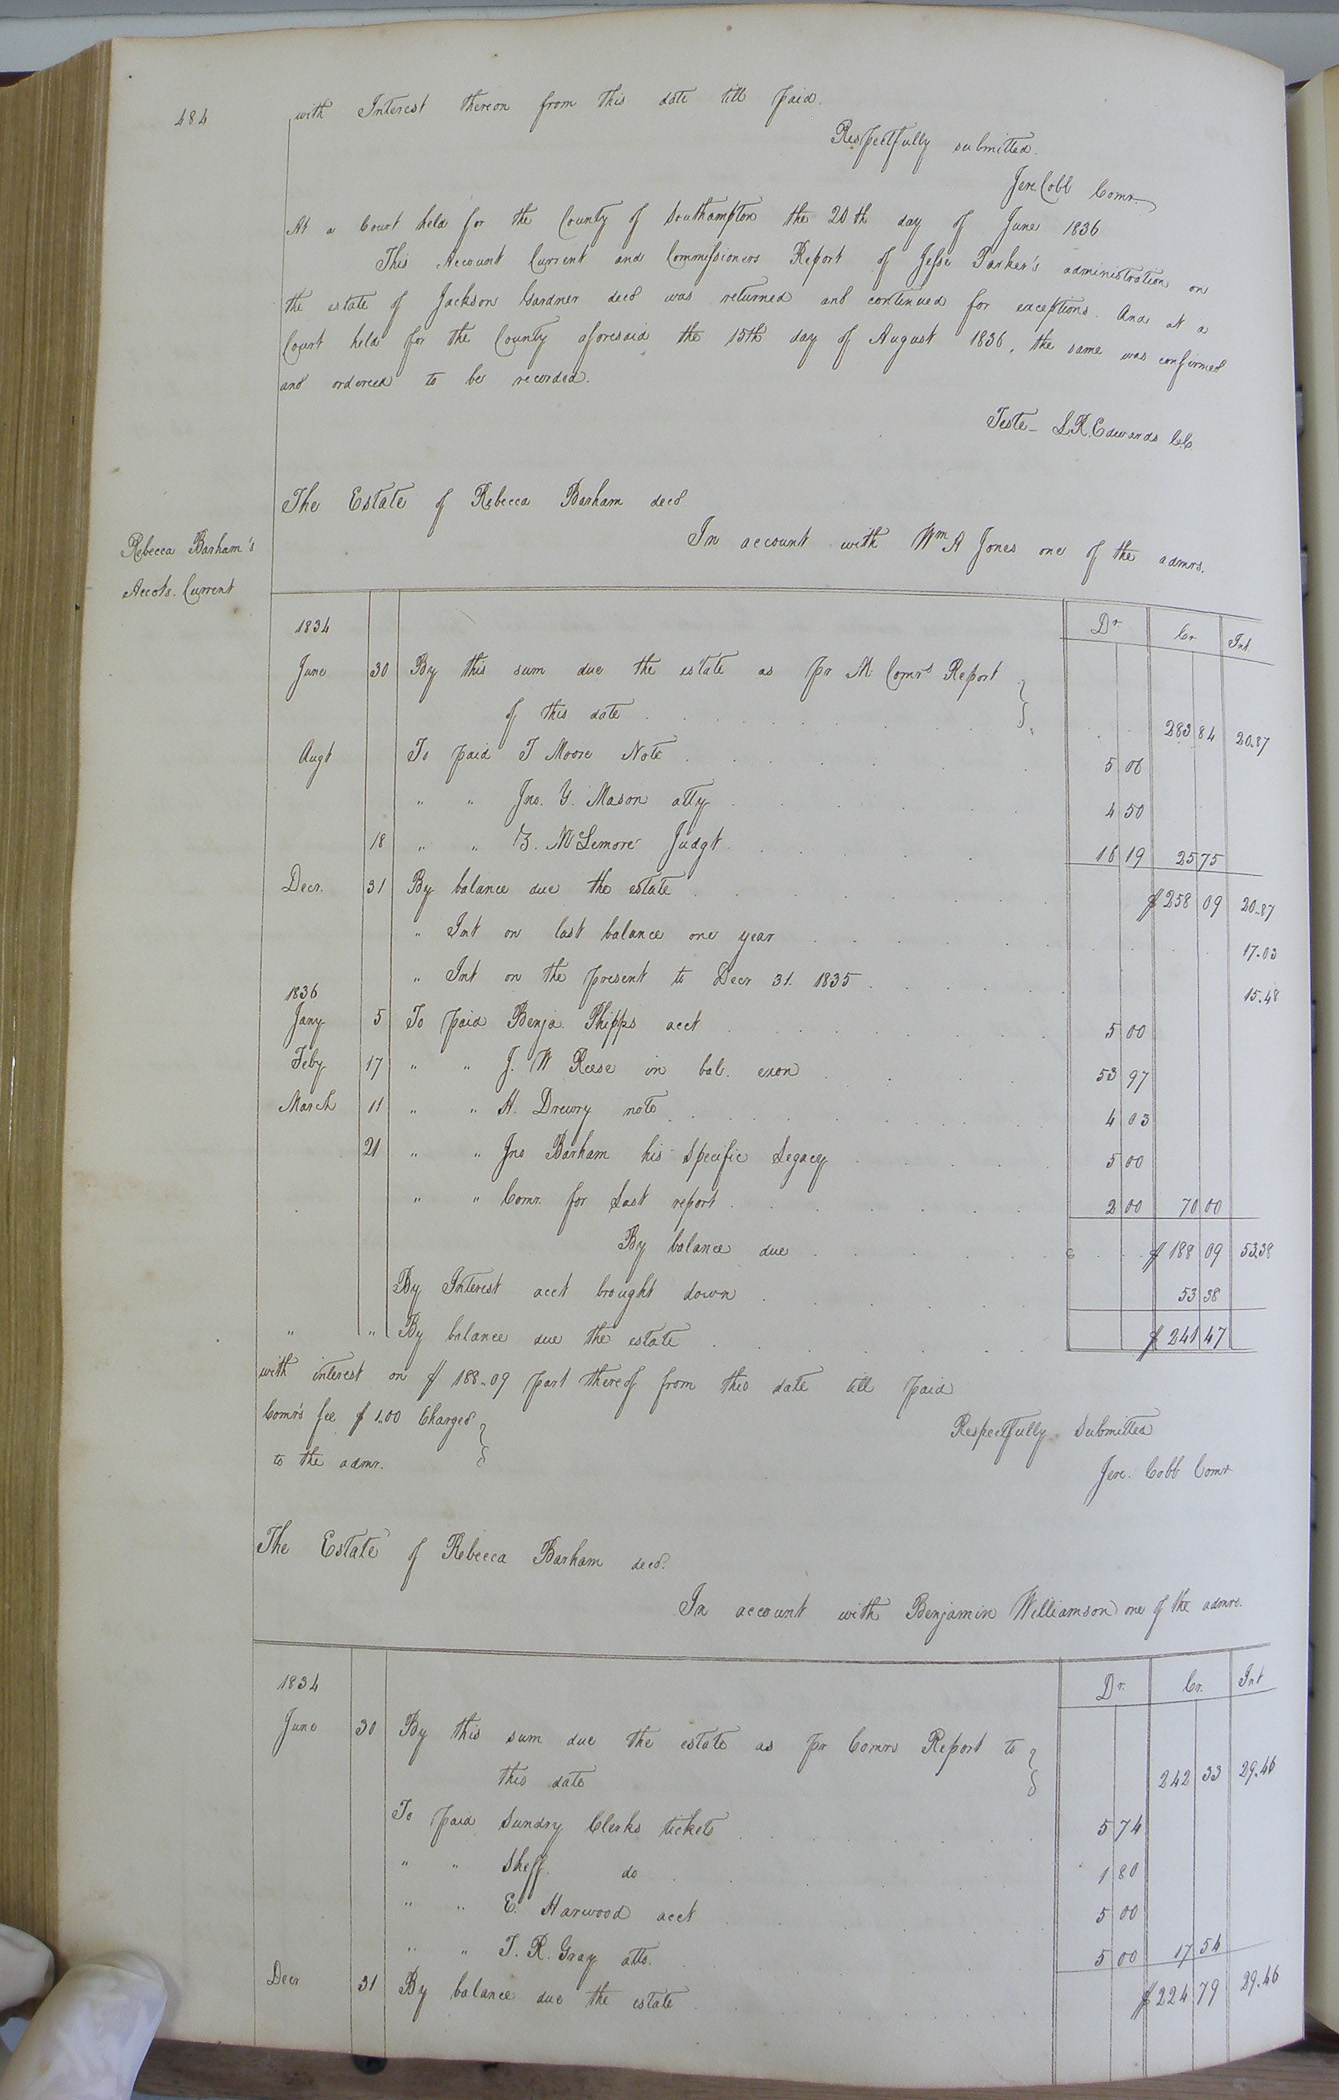 484
with Interest thereon from this date till paid.
Respectfully submitted.
Jere Cobb Comr.
At a Court held for the County of Southampton the 20th day of June 1836
This Account Current and Commissioners Report of Jesse Parker's administration on
the estate of Jackson Gardner decd was returned and continued for exceptions. And at a
Court held for the County aforesaid the 15th day of August 1836, the same was confirmed
and ordered to be recorded.
Teste - L.R. Edwards Cl.
The Estate of Rebecca Barham decd
Rebecca Barham's
Accots. Current
In account with Wm A Jones one of the admrs.
1834 Dr Cr. Int.
June 30 By this sum due the estate as pr M. Comrs Report
of this date 283 84 20.87
Augt To paid T Moore Note 5 06
" " Jno. Y. Mason atty 4 50
18 " " B. McLemore Judgt 16 19 25 75
Decr. 31 By balance due the estate $258 09 20.87
" Int on last balance one year 17.03
" Int on the present to Decr 31. 1835 15.48
1836
Jany 5 To paid Benja. Phipps acct 5 00
Feby 17 " " J. W Reese in bal. exon 53 97
March 11 " " H. Drewry note 4 03
21 " " Jno Barham his Specific Legacy 5 00
" " Comr. for Last report 2 00 70 00
By balance due $188 09 53.38
By Interest acct brought down 53 38
" " By balance due the estate $241 47
with interest on $188.09 part thereof from this date till paid
Comrs fee $1.00 Charged
to the admr.
Respectfully Submitted
Jere. Cobb Comr
The Estate of Rebecca Barham decd.
In account with Benjamin Williamson one of the admrs.
1834 Dr. Cr. Int
June 30 By this sum due the estate as pr Comrs Report to
this date 242 33 29.46
To paid Sundry Clerks tickets 5 74
" " Sheff. do 1 80
" " E. Harwood acct 5 00
" " T. R. Gray atto. 5 00 17 54
Decr 31 By balance due the estate $224 79 29.46